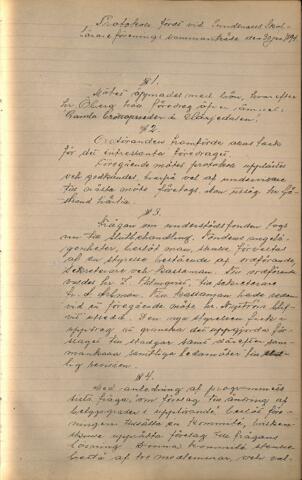 Protokoll fördt vid Sunderets Skol-
lärareförenings sammanträde den 20 juni 1894
§ 1.
Mötet öppnades med bön, hvarefter
hr Öberg höll föredrag öfver ämnet:
§ 2.
Ordföranden framförde allas tack
för det intressanta föredraget.
Föregående mötes protokoll upplästes
och godkändes, hvarpå val af
till nästa möte företogs, den utsåg hr
§ 3.
Frågan om understödsfonden togs
nu till slutbehandling. Fondens angelä-
genheter, beslöt man, skulle förvaltas
af en styrelse bestående af ordförande,
Sekreterare och kassaman. Till ordförande
valdes hr L. Holmgren, till sekreterare
hr A. Till kassaman hade redan
vid en föregående möte hr
utsedd. Den nya styrelsen fick i
uppdrag att granska det uppgjorda för-
slaget till stadgar samt därefter sam-
mankalla samtliga ledamöter till
revision.
§ 4.
Med anledning af programmets
fråga, om förslag till ändring af
betygsgrader i uppförande beslöt före-
ningen tillsätta en kommitté, hvilken
skulle upprätta förslag till frågans
lösning. Denna kommitté skulle
bestå af tre medlemmar, och val-